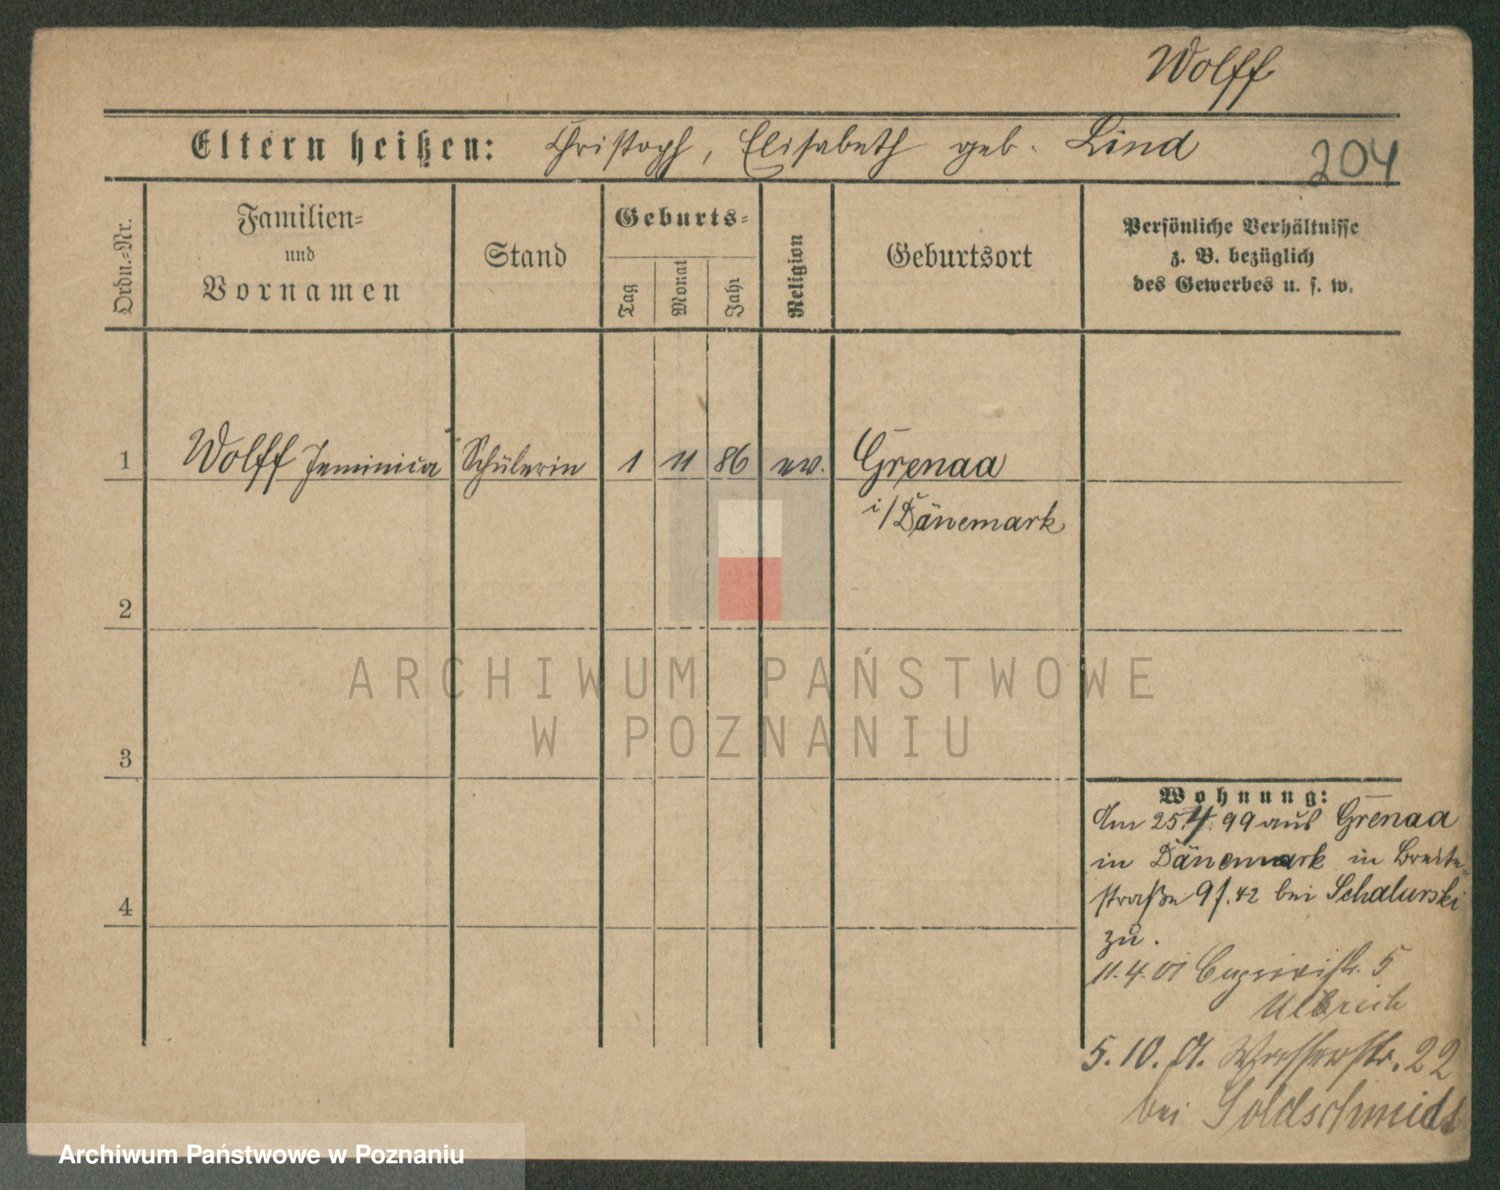 Wolff
Eltern heißen: Christoph, Elisabeth geb. Lind
204
Ordn.=Nr.
Familien=
und
Vornamen
Stand
Geburts=
Tag
Monat
Jahr
Religion
Geburtsort
Persönliche Verhältnisse
z. B. bezüglich
des Gewerbes u. s. w.
1 Wolff Schülerin 1 11 86 ev. Grenaa
i/Dänemark
2
3
4
Wohnung:
Am 25.4.99 aus Grenaa
in Dänemark in Breite-
straße 9 f. 42 bei Schalurski
zu.
11.4.01 Caprivistr. 5
Ulbrich
5.10.01. Wasserstr. 22
bei Goldschmidt
ARCHIWUM PAŃSTWOWE
W POZNANIU
Archiwum Państwowe w Poznaniu